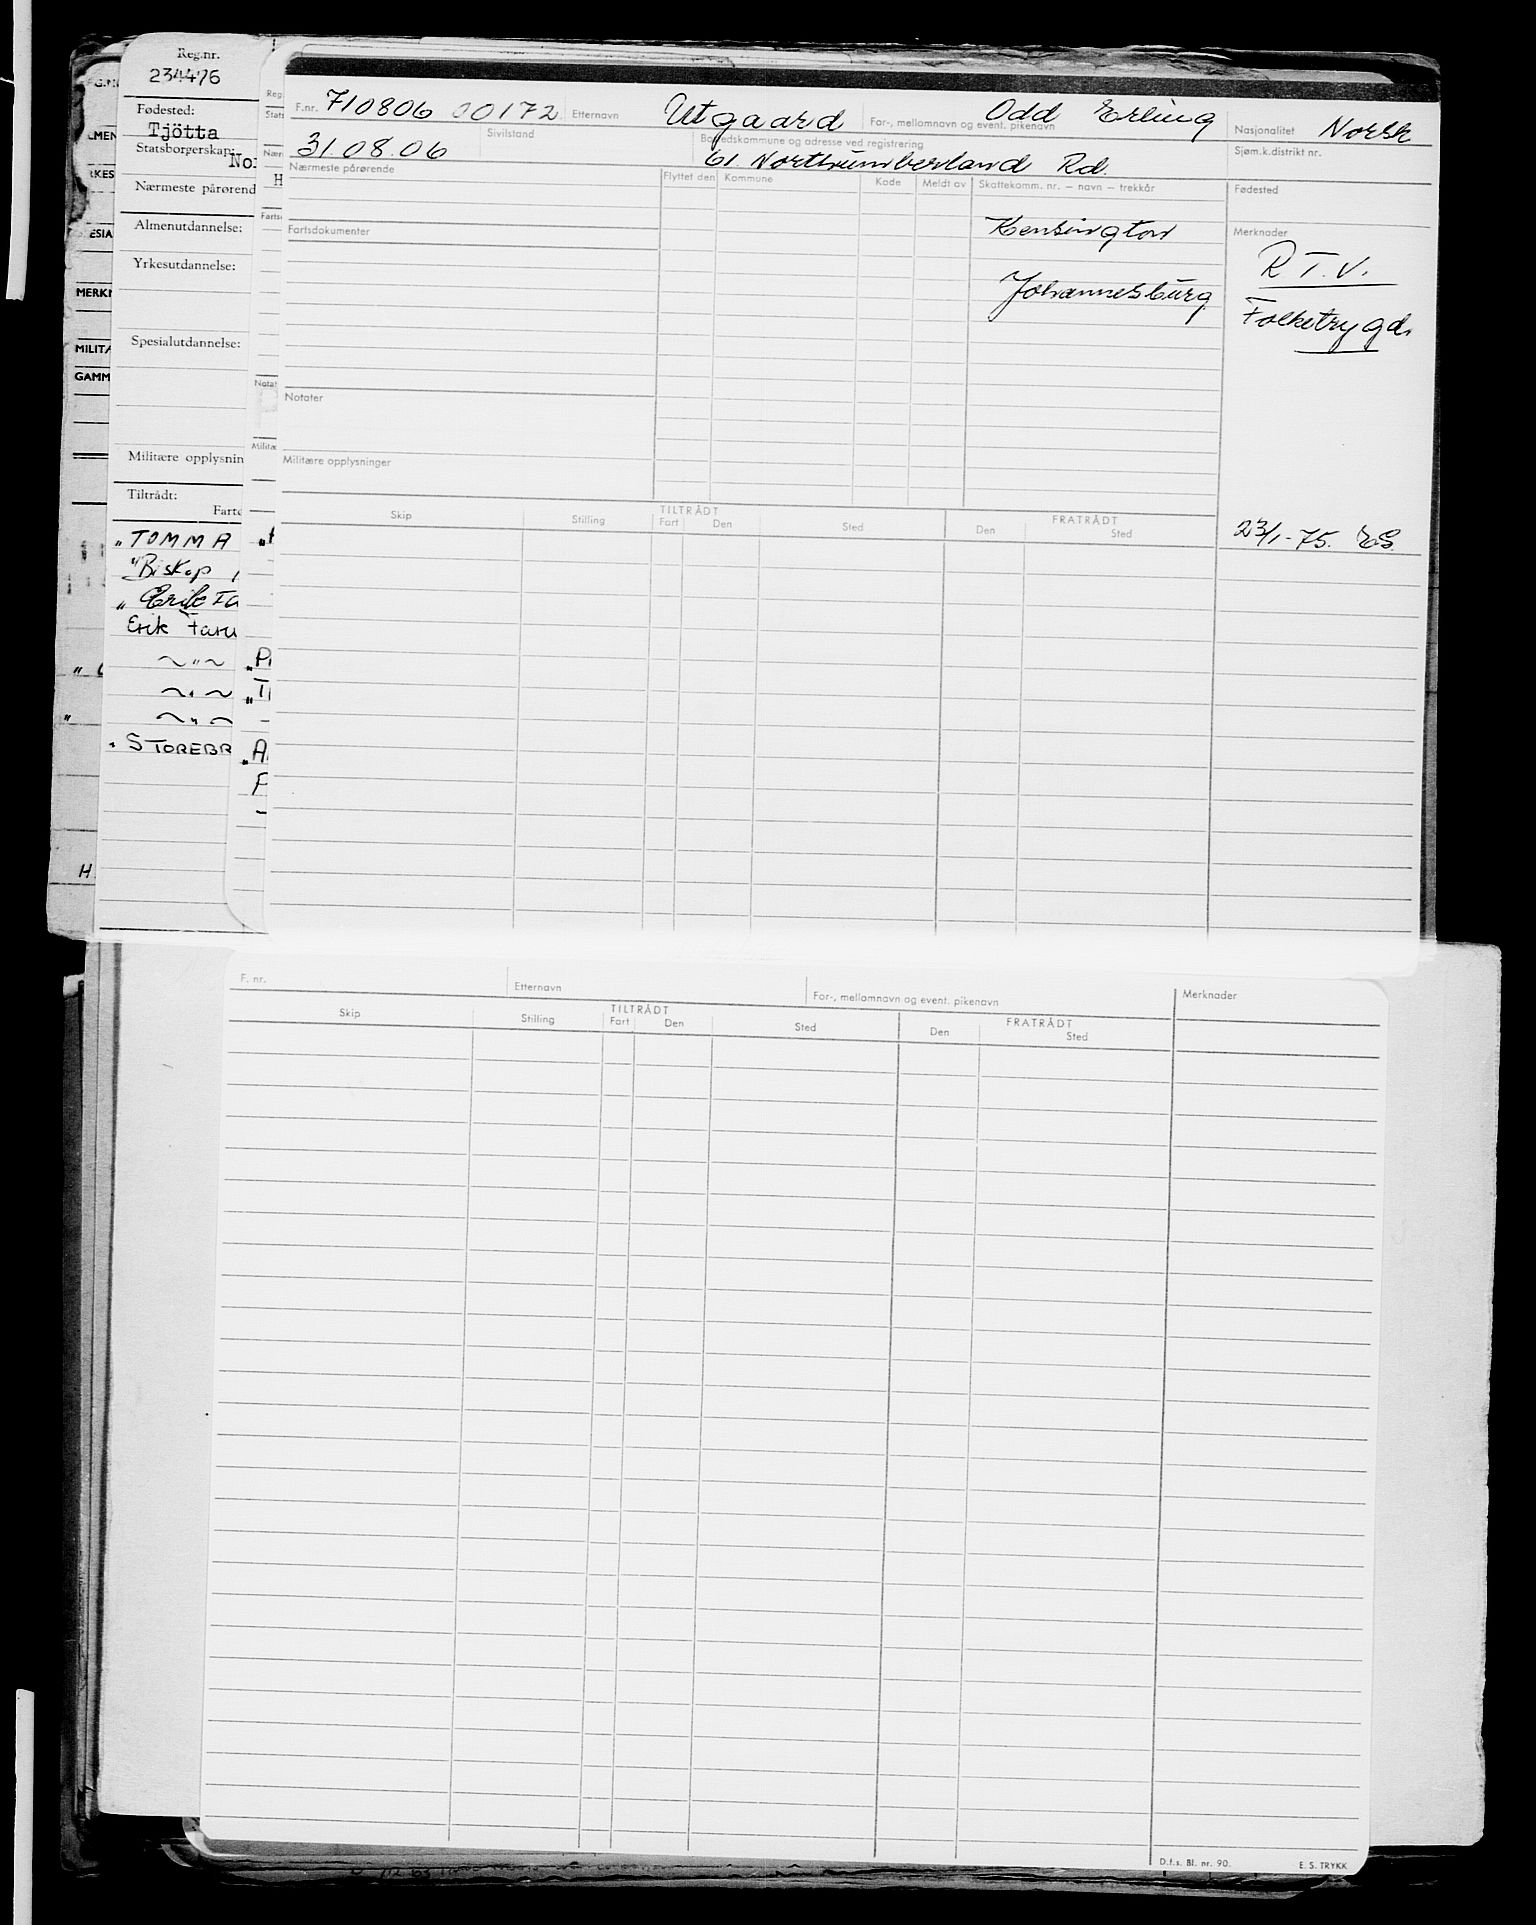 Reg.nr.
234476
Fødested:
Tjötta
Statsborgerskap:
Nærmeste pårørend
Almenutdannelse:
Yrkesutdannelse:
Spesialutdannelse:
Militære opplysnin
Tiltrådt:
„ TOMMA
"Biskop
„ Erik
Erik
~ " ~
~ " ~
~ " ~
" STOREBR
MERK
MILITÆ
GAMM
H
F.nr. 710806 00172 Etternavn Utgaard For-, mellomnavn og event. pikenavn Odd Erling Nasjonalitet Norsk
31.08.06 Sivilstand Bostedskommune og adresse ved registrering 61. Northumberland Rd. Sjøm.k.distrikt nr.
Nærmeste pårørende Flyttet den Kommune Kode Meldt av Skattekomm. nr. – navn – trekkår Fødested
Kensington
Johannesburg
Fartsdokumenter
Merknader
R.T.V.
Folketrygd.
Notater
Militære opplysninger
TILTRÅDT FRATRÅDT
Skip Stilling Fart Den Sted Den Sted
23/1-75. ES.
F. nr. Etternavn For-, mellomnavn og event. pikenavn Merknader
TILTRÅDT FRATRÅDT
Skip Stilling Fart Den Sted Den Sted
D.f.s. Bl. nr. 90. E. S. TRYKK